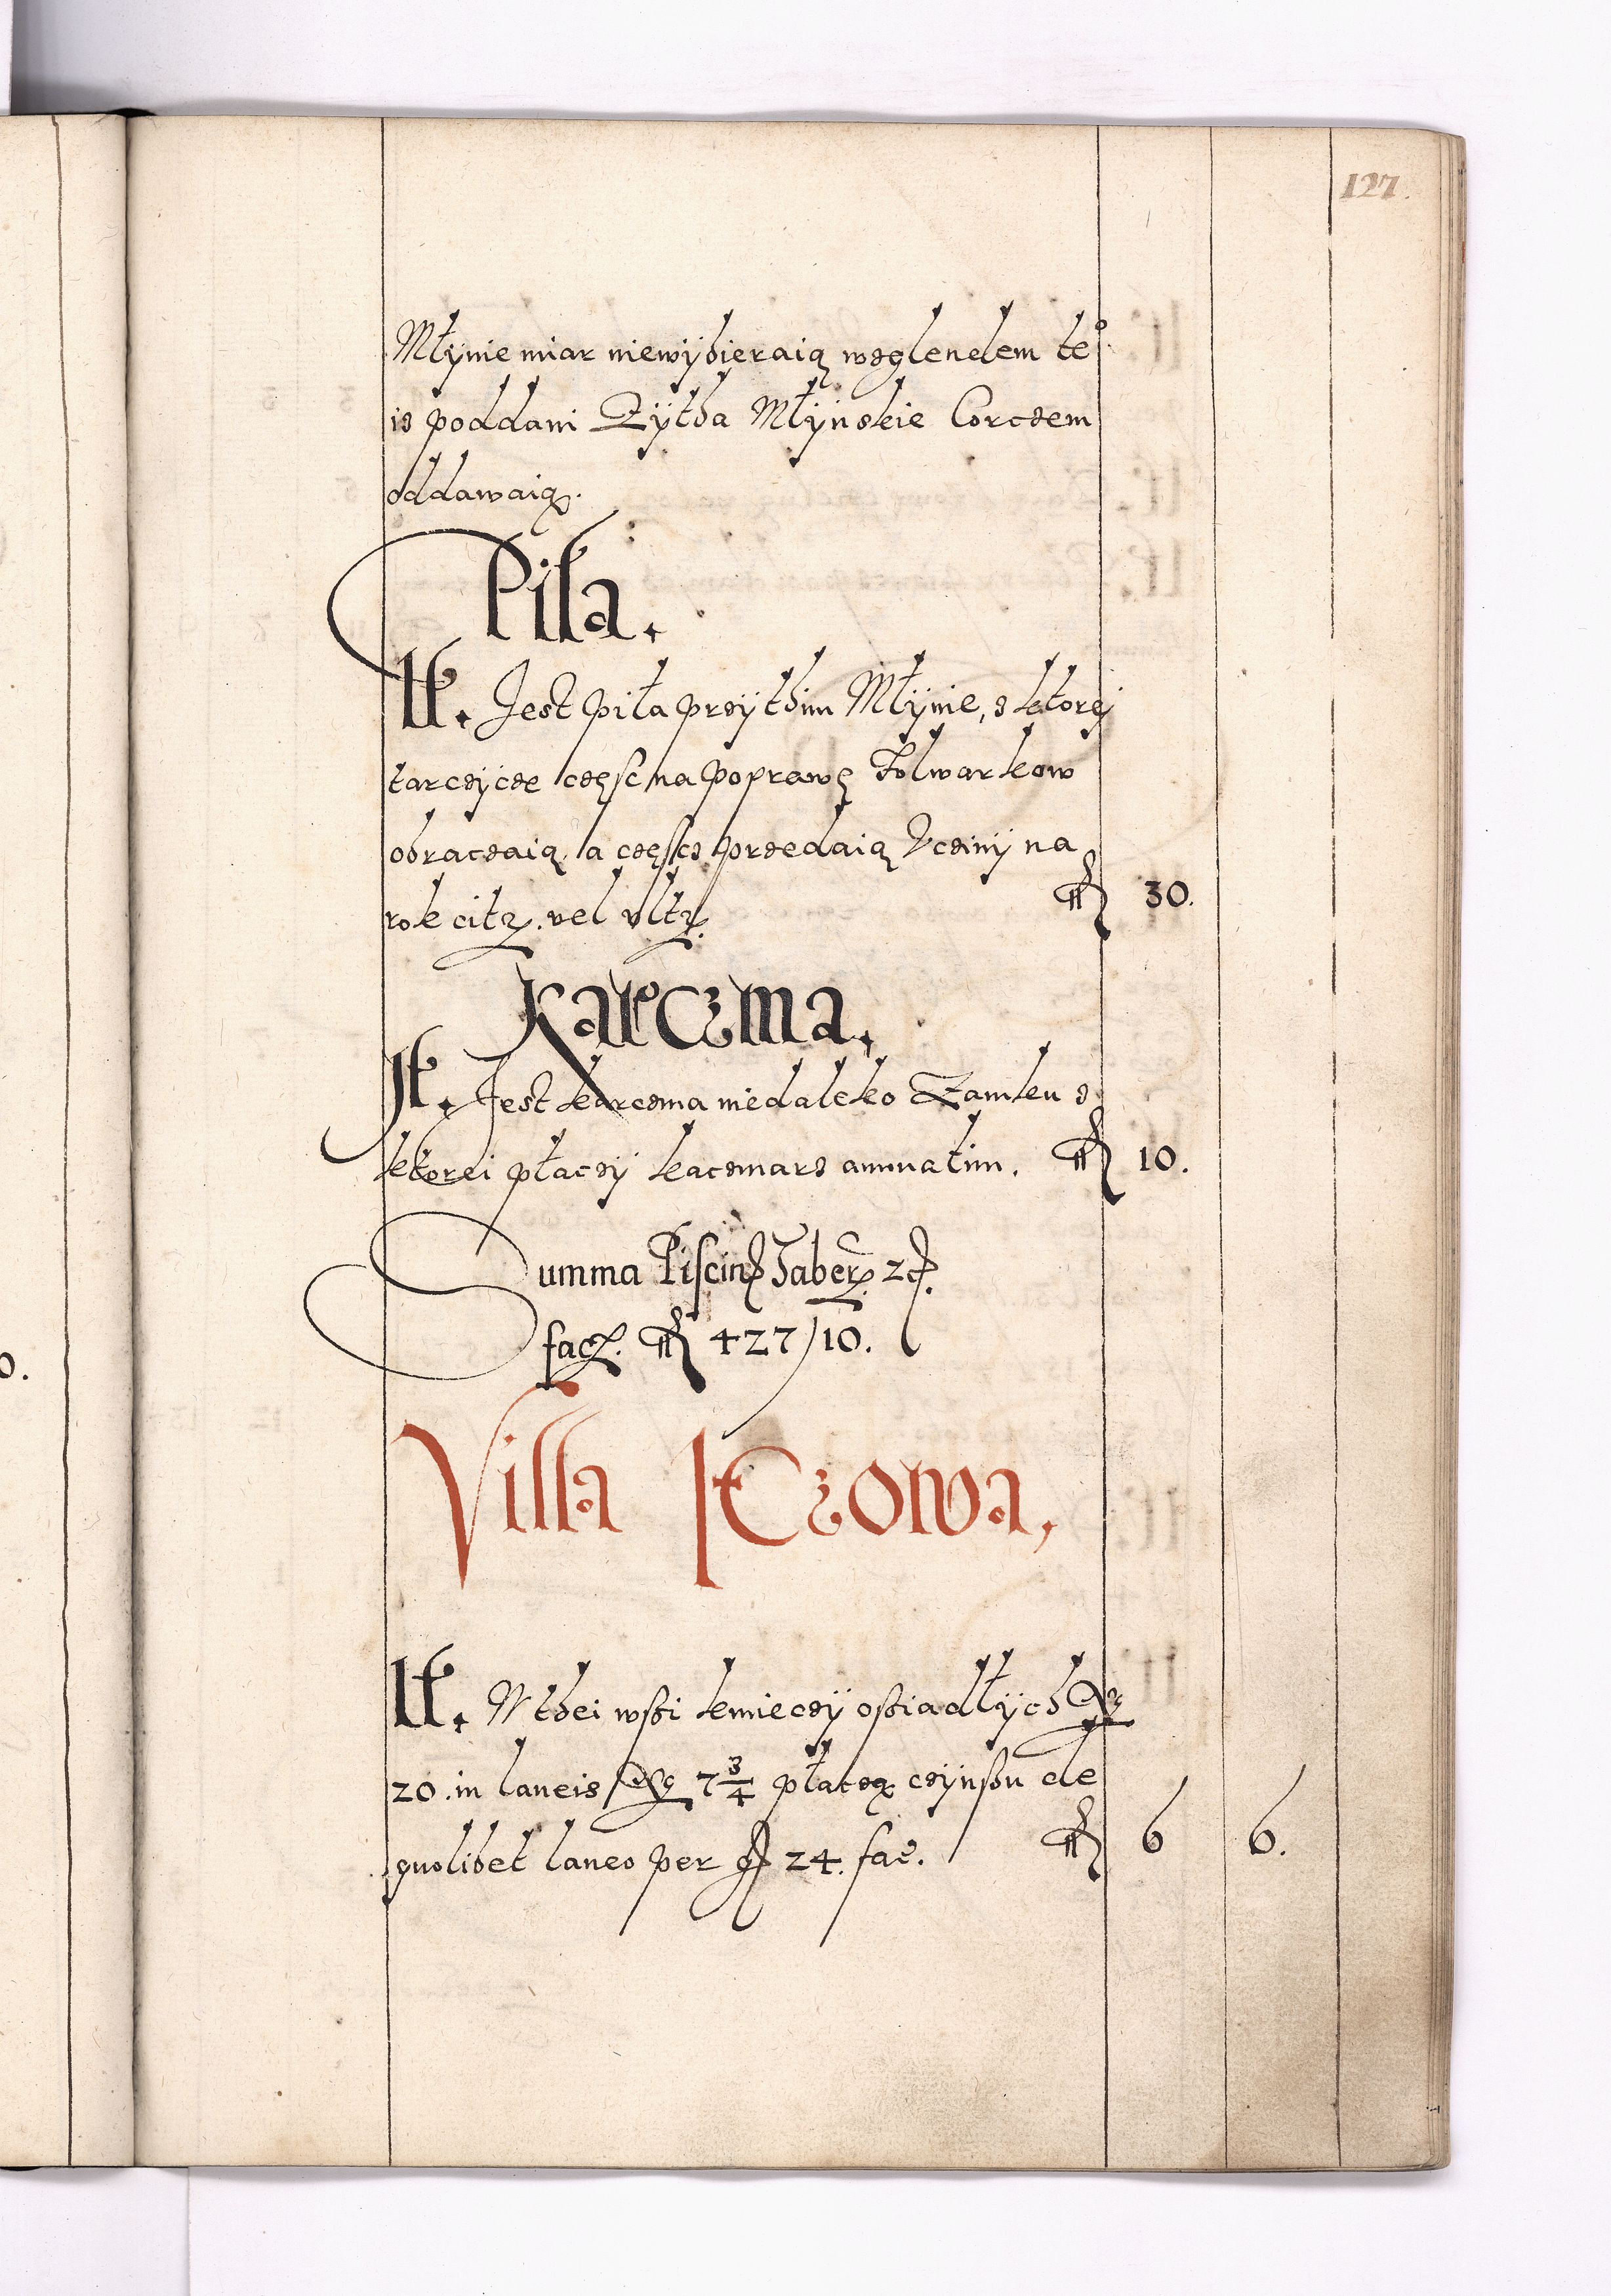 127.
Młÿnie miar niewÿbieraią wzglendem te°
iz poddani Zÿtha Młÿnskie Corczem
oddawaią.
Piła.
It. Jest piła przÿ thim Młÿnie, z ktorej
tarczÿcze częsc na poprawę Folwarkow
obraczaią, a częscz przedaią Vczinÿ na
rok citr. vel vltr. fl 30.
Karczma.
It. Jest karczma niedaleko Zamku z
ktorei płaczÿ kaczmarz annuatim. fl 10.
Summa Piscin Taber. 2
fac. fl 427/10.
Villa Kczowa,
It. W thei wsi kmieczÿ osiadłÿch
20. in laneis 7 3/4 płaczą czÿnszu de
quolibet laneo per gr 24. fac. fl 6 6.
0.